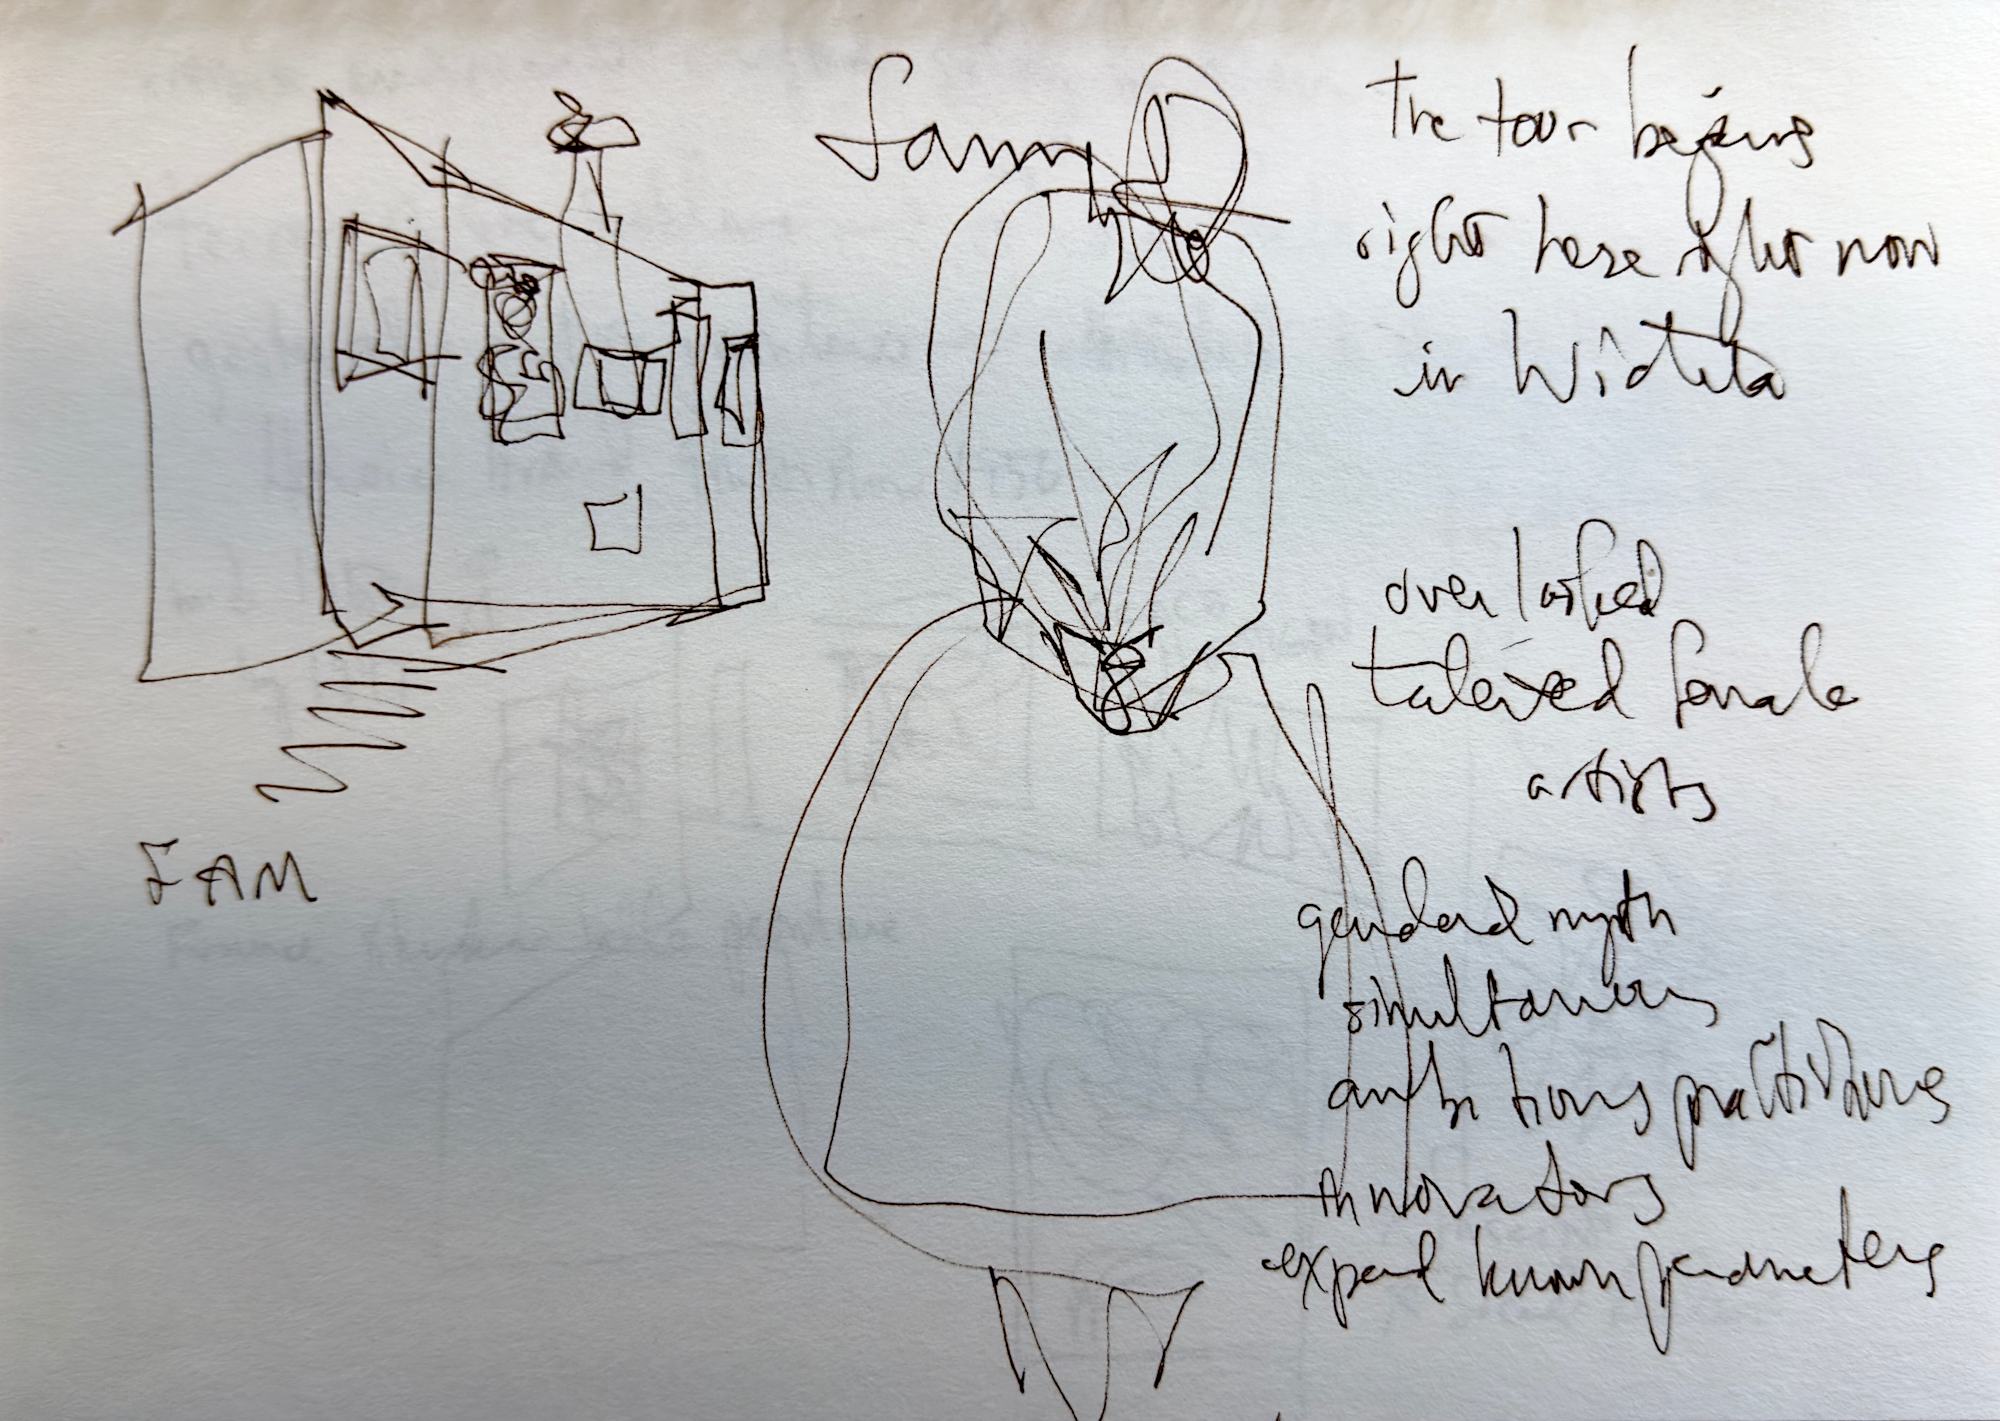 Sammy
The tour begins
right here right now
in Wichita
overlooked
talented female
artists
gendered myth
simultaneous
ambitious practitioners
innovators
expand known parameters